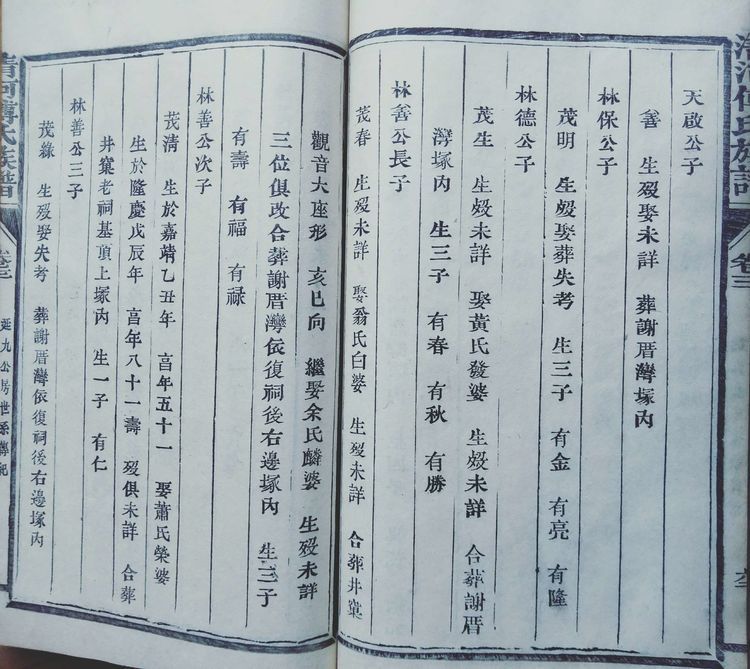 天啟公子
善 生歿娶未詳 葬謝厝灣塚內
林保公子
茂明 生歿娶葬失考 生三子 有金 有亮 有隆
林德公子
茂生 生歿未詳 娶黃氏發婆 生歿未詳 合葬謝厝
灣塚內 生三子 有春 有秋 有勝
林善公長子
茂春 生歿未詳 娶翁氏白婆 生歿未詳 合葬井窠
觀音大座形 亥巳向 繼娶余氏麟婆 生歿未詳
三位俱改合葬謝厝灣依復祠後右邊塚內 生三子
有壽 有福 有禄
林善公次子
茂清 生於嘉靖乙丑年 亯年五十一 娶蕭氏榮婆
生於隆慶戊辰年 亯年八十一壽 歿俱未詳 合葬
井窠老祠基頂上塚內 生一子 有仁
林善公三子
茂綠 生歿娶失考 葬謝厝灣依復祠後右邊塚內
清河傅氏族譜 卷三 延九公房世系傳紀